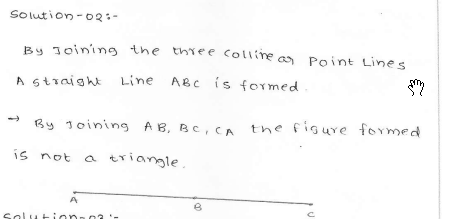 Solution-02:-
By Joining the three Colline ar Point Lines
A straight Line ABC is formed.
→ By Joining AB, BC, CA the figure formed
is not a triangle.
A
B
C
Solution-03:-